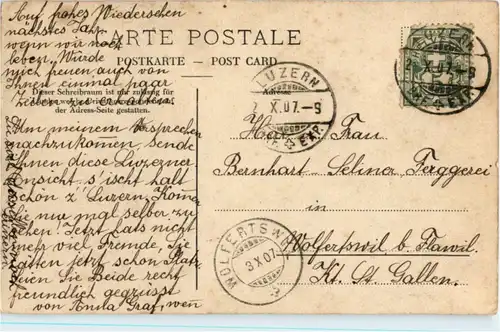 Auf frohes Wiedersehen
nächstes Jahr
wenn wir noch
leben. Würde
mich freuen auch von
Ihnen einmal paar
CARTE POSTALE
POSTKARTE — POST CARD
Dieser Schreibraum ist nur zulässig für
der Adress-Seite gestatten.
Um meinem Versprechen
nachzukommen, sende
Ihnen diese Luzerner
Ansicht s'ischt halt
schön z'Luzern. Kome
Sie nur mal selber, zu
sehen! Jetzt hats nicht
mehr viel Fremde, Sie
hätten jetzt schon Platz
Seien Sie Beide recht
freundlich gegrüsst
von Anita Graf, wen
LUZERN
X.07.-9
EXP.
LUZERN
X.07.-9
EXP.
Frau
Bernhart Selina Ferggerei
in
Wolfertswil b. Flawil
Kt. St. Gallen.
WOLFERTSWIL
3.X.07.